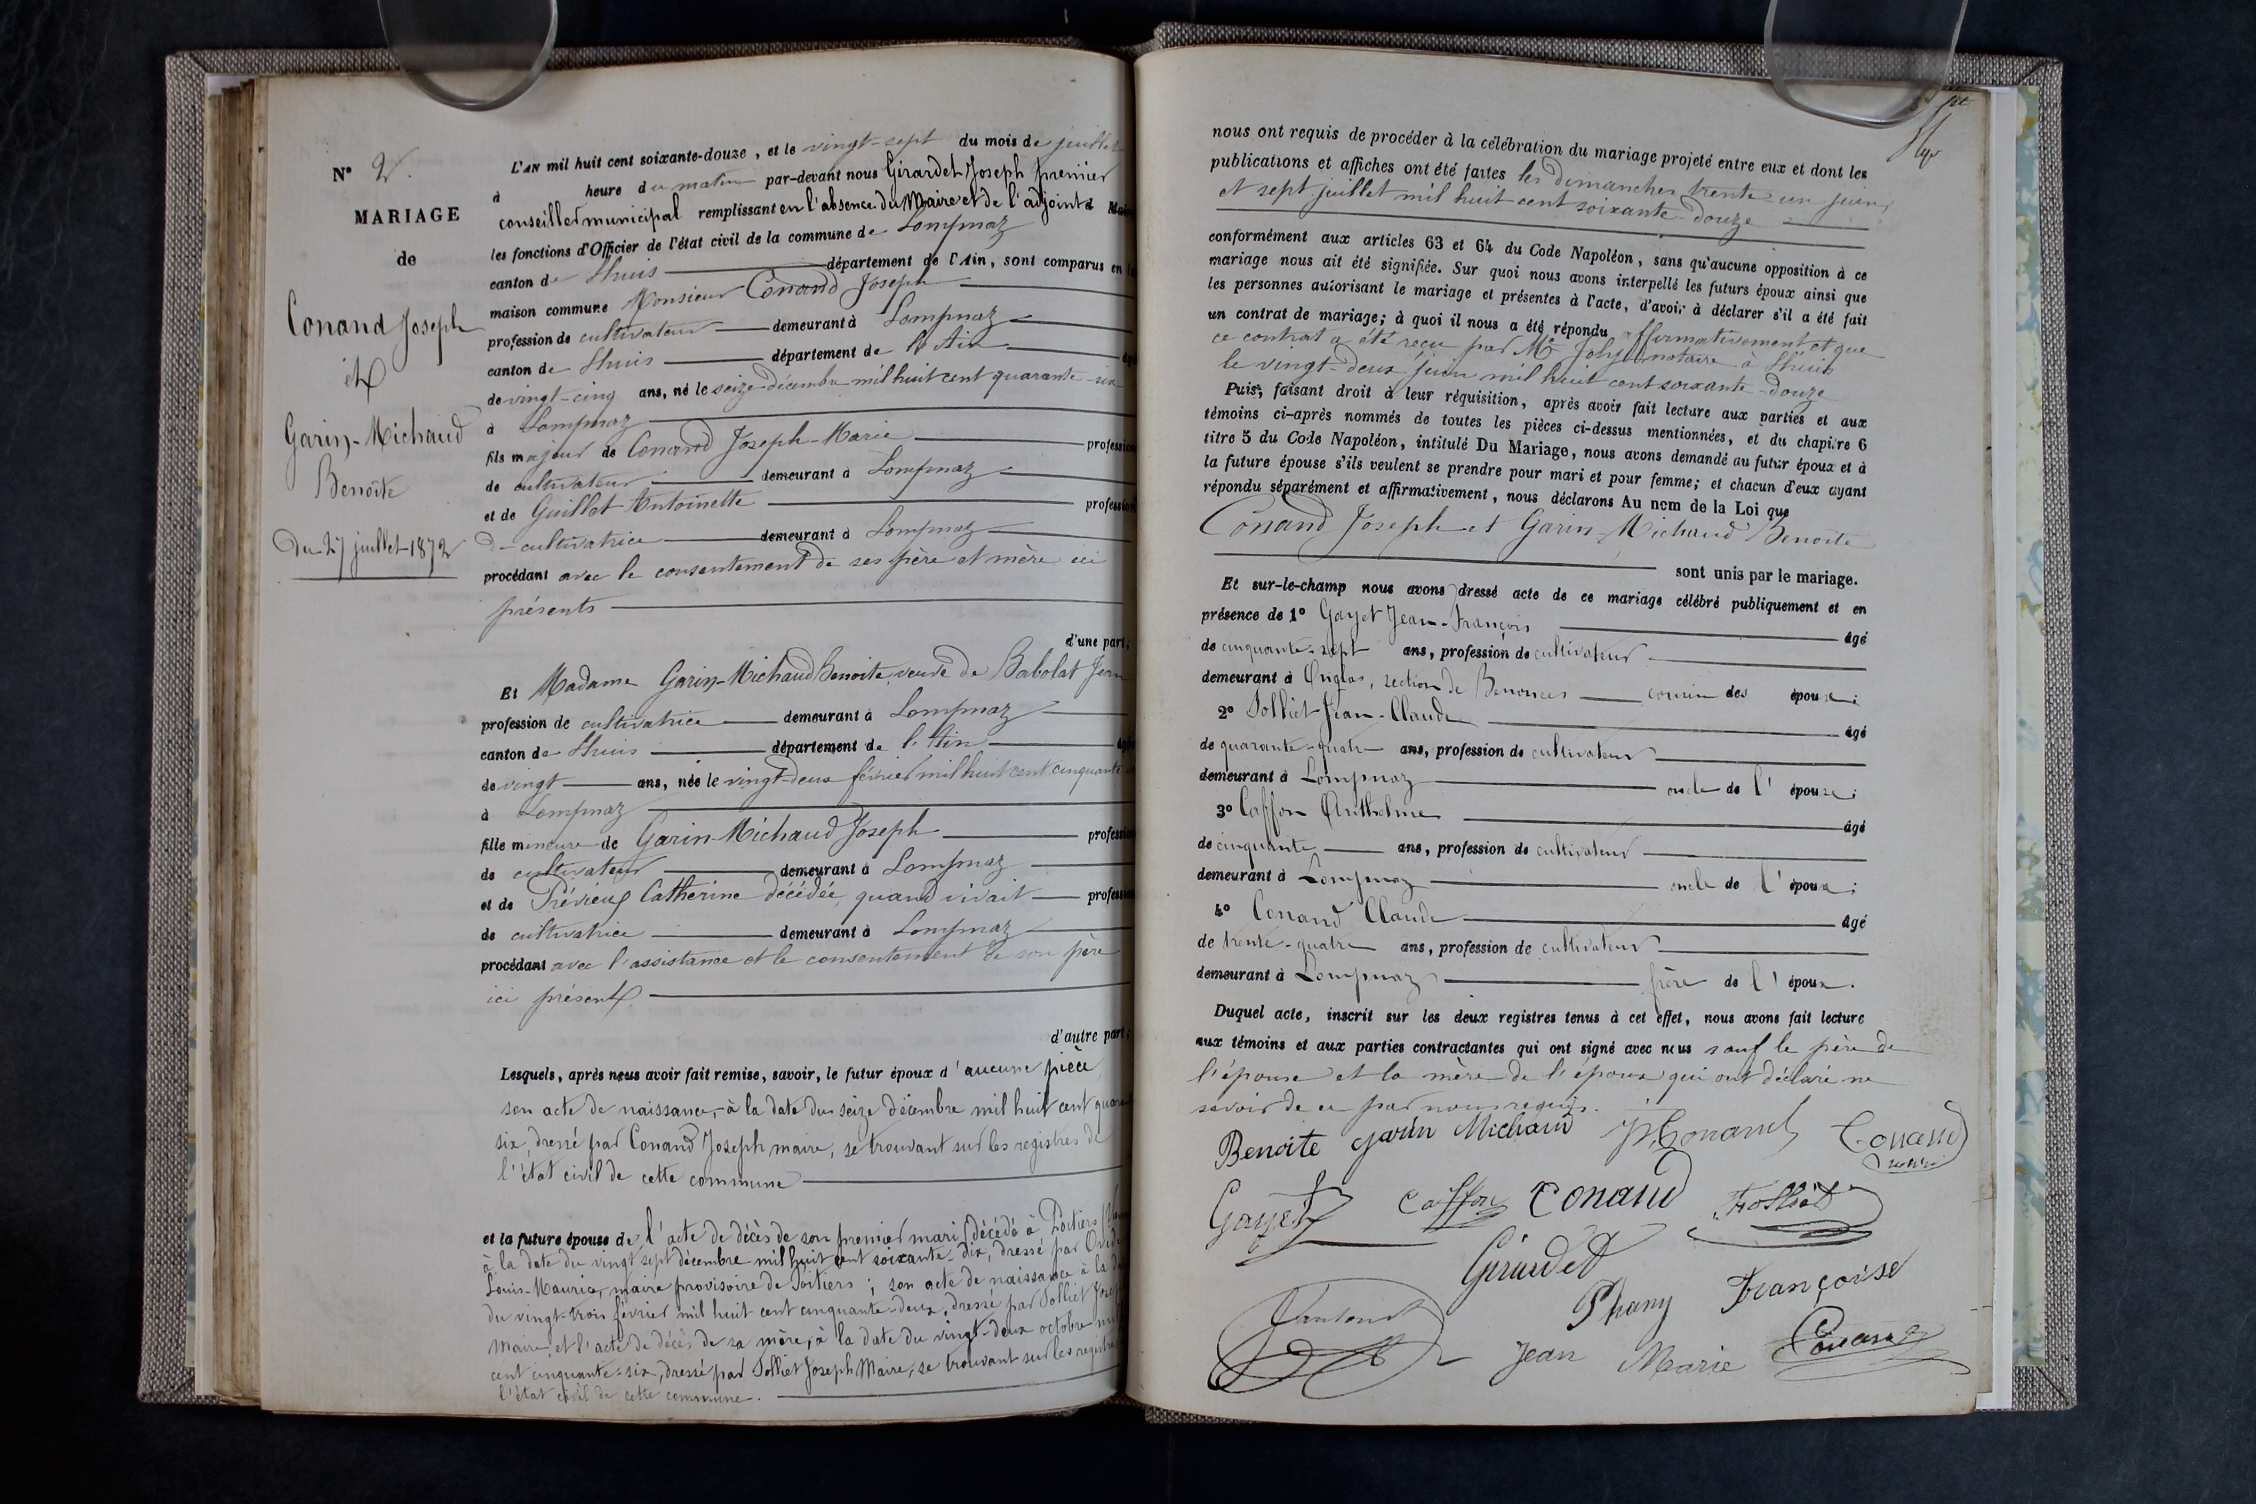 N° 2.
MARIAGE
de
Conand Joseph
et
Garin-Michaud
Benoîte
Du 27 juillet 1872
L'AN mil huit cent soixante-douze, et le vingt-sept du mois de juillet
à heure du matin par-devant nous Girardet Joseph premier
conseiller municipal remplissant en l'absence du Maire et de l'adjoint
les fonctions d'Officier de l'état civil de la commune de Lompnaz
canton de Lhuis département de l'Ain, sont comparus en la
maison commune Monsieur Conand Joseph
profession de cultivateur demeurant à Lompnaz
canton de Lhuis département de l'Ain âgé
de vingt-cinq ans, né le seize décembre mil huit cent quarante-six
à Lompnaz
fils majeur de Conand Joseph-Marie profession
de cultivateur demeurant à Lompnaz
et de Guillot Antoinette profession
de cultivatrice demeurant à Lompnaz
procédant avec le consentement de ses père et mère ici
présents
d'une part;
Et Madame Garin-Michaud Benoite, veuve de Babolat Jean
profession de cultivatrice demeurant à Lompnaz
canton de Lhuis département de l'Ain âgée
de vingt ans, née le vingt-deux février mil huit cent cinquante
à Lompnaz
fille mineure de Garin-Michaud Joseph profession
de cultivateur demeurant à Lompnaz
et de Prévieux Catherine décédée, quand vivait profession
de cultivatrice demeurant à Lompnaz
procédant avec l'assistance et le consentement de son père
ici présent
d'autre part;
Lesquels, après nous avoir fait remise, savoir, le futur époux d'aucune pièce
son acte de naissance, à la date du seize décembre mil huit cent quarante
six, dressé par Conand Joseph maire, se trouvant sur les registres de
l'état civil de cette commune
et la future épouse de l'acte de décès de son premier mari décédé à Poitiers
à la date du vingt sept décembre mil huit cent soixante dix, dressé par
Louis-Maurice, maire provisoire de Poitiers; son acte de naissance à la
du vingt-trois février mil huit cent cinquante-deux, dressé par Tolliet Joseph
Maire, et l'acte de décès de sa mère, à la date du vingt-deux octobre mil
cent cinquante-six, dressé par Tolliet Joseph Maire, se trouvant sur les registres
l'état civil de cette commune.
nous ont requis de procéder à la célébration du mariage projeté entre eux et dont les
publications et affiches ont été faites les dimanches trente un juin
et sept juillet mil huit cent soixante-douze
conformément aux articles 63 et 64 du Code Napoléon, sans qu'aucune opposition à ce
mariage nous ait été signifiée. Sur quoi nous avons interpellé les futurs époux ainsi que
les personnes autorisant le mariage et présentes à l'acte, d'avoir à déclarer s'il a été fait
un contrat de mariage; à quoi il nous a été répondu affirmativement et que
ce contrat a été reçu par Me Joly notaire à Lhuis
le vingt-deux juin mil huit cent soixante-douze
Puis, faisant droit à leur réquisition, après avoir fait lecture aux parties et aux
témoins ci-après nommés de toutes les pièces ci-dessus mentionnées, et du chapitre 6
titre 5 du Code Napoléon, intitulé Du Mariage, nous avons demandé au futur époux et à
la future épouse s'ils veulent se prendre pour mari et pour femme; et chacun d'eux ayant
répondu séparément et affirmativement, nous déclarons Au nom de la Loi que
Conand Joseph et Garin-Michaud Benoite
sont unis par le mariage.
Et sur-le-champ nous avons dressé acte de ce mariage célébré publiquement et en
présence de 1° Gayet Jean-François âgé
de cinquante-sept ans, profession de cultivateur
demeurant à Onglas, section de Benonces cousin des époux;
2° Tolliet Jean-Claude âgé
de quarante-quatre ans, profession de cultivateur
demeurant à Lompnaz oncle de l'épouse;
3° Caffon Anthelme âgé
de cinquante ans, profession de cultivateur
demeurant à Lompnaz oncle de l'époux;
4° Conand Claude âgé
de trente-quatre ans, profession de cultivateur
demeurant à Lompnaz frère de l'époux.
Duquel acte, inscrit sur les deux registres tenus à cet effet, nous avons fait lecture
aux témoins et aux parties contractantes qui ont signé avec nous sauf le père de
l'épouse et la mère de l'époux qui ont déclaré ne
savoir de ce par nous requis.
Benoite garin Michaud Conand Conand
Gayet Caffon Conand Tolliet
Girardet
Phany Françoise
Jean Marie Conand